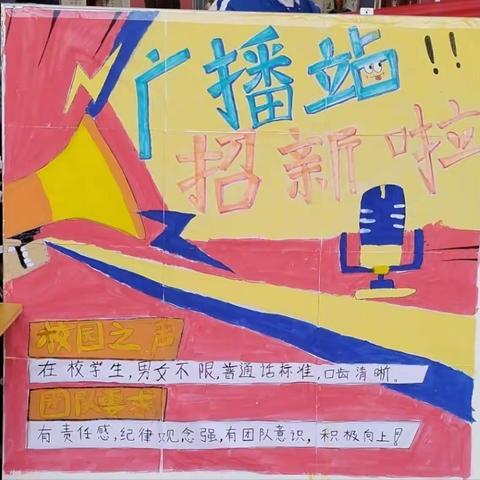 广播站!!
招新啦
校园之声
在校学生,男女不限,普通话标准,口齿清晰。
团队要求
有责任感,纪律观念强,有团队意识,积极向上!